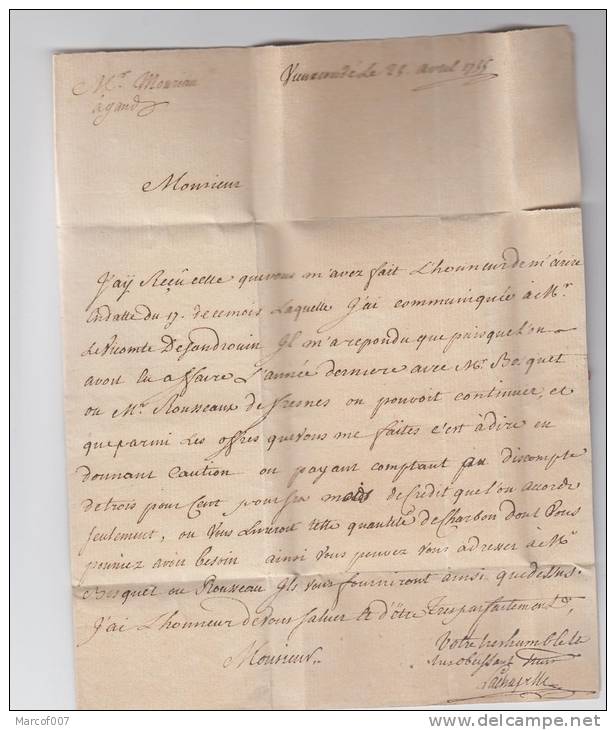 Mr. Mouriau
a gand
le 25. avril 1755
Monsieur
J'ay Reçû celle que vous m'avez fait L'honneur de m'écrire
En datte du 17. de ce mois Laquelle J'ai communiquée à Mr.
Le Vicomte Desandrouin Il m'a repondu que puisque l'on
avoit Eu affaire L'année derniere avec Mr. Bosquet
ou Mr. Rousseaux de fresnes on pouvoit continuer, et
que parmi Les offres que vous me faites c'est à dire en
donnant Caution ou payant comptant au discompte
de trois pour Cent pour six mois de Credit que l'on accorde
seulement, on Vous Livreroit cette quantité de Charbon dont Vous
pouriez avoir besoin ainsi vous pouvez vous adresser à Mr.
Bosquet ou Rousseau Ils vous fourniront ainsi que dessus.
J'ai L'honneur de vous saluer et d'être Tres parfaitement
Monsieur
Votre tres humble et
tres obeissant
Lachapelle
Marcof007
delcampe.net